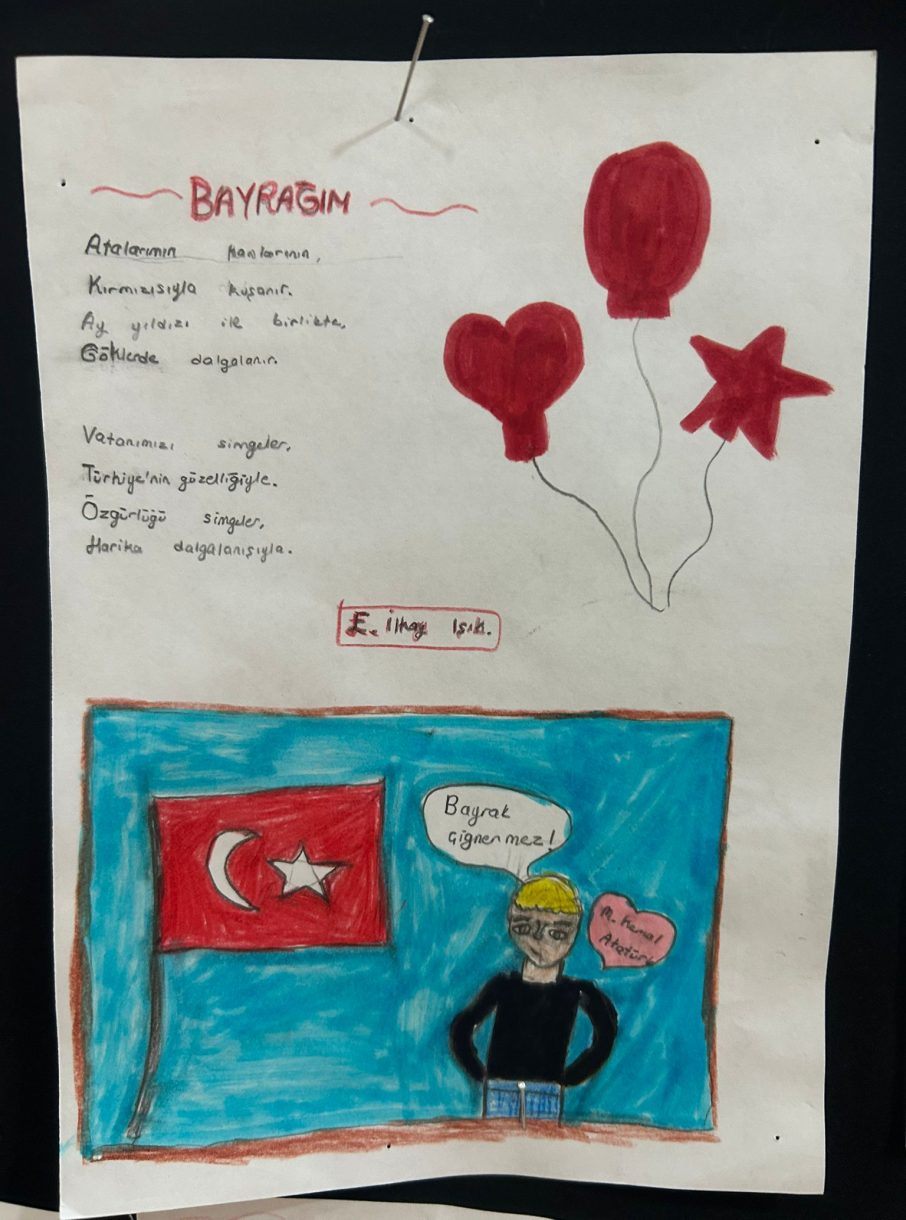 BAYRAĞIM
Atalarımın kanlarının,
Kırmızısıyla kuşanır.
Ay yıldızı ile birlikte,
Göklerde dalgalanır.
Vatanımızı simgeler,
Türkiye'nin güzelliğiyle.
Özgürlüğü simgeler,
Harika dalgalanışıyla.
E. İlkay Işık.
Bayrak
çignenmez!
M. Kemal
Atatürk